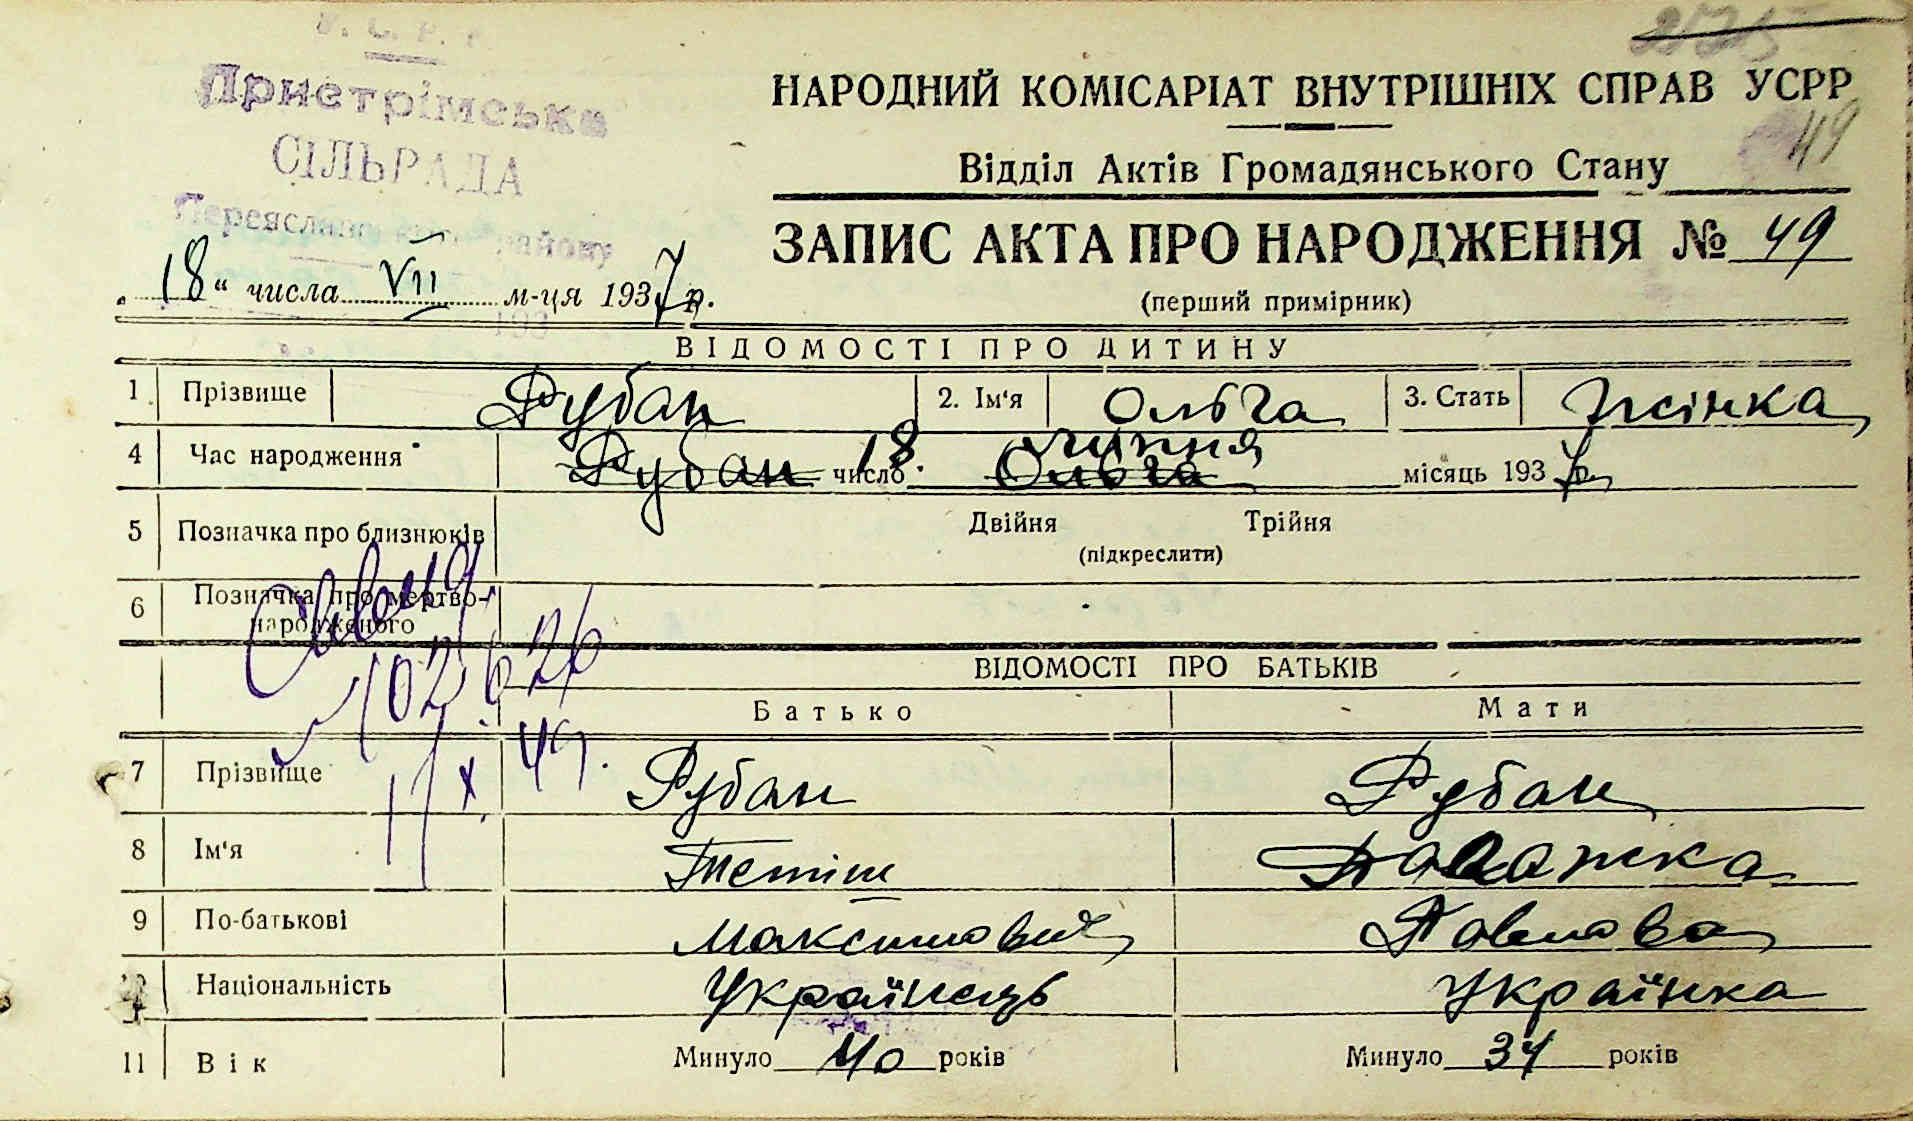 У. С. Р. Р.
Пристрімська
СІЛЬРАДА
Переяславського району
193
49
НАРОДНИЙ КОМІСАРІАТ ВНУТРІШНІХ СПРАВ УСРР
Відділ Актів Громадянського Стану
ЗАПИС АКТА ПРО НАРОДЖЕННЯ № 49
(перший примірник)
„18“ числа VII м-ця 1937 р.
ВІДОМОСТІ ПРО ДИТИНУ
1 Прізвище Рубан 2. Ім'я Ольга 3. Стать Жінка
4 Час народження Рубан 18 число Ольга липня місяць 1937 р.
5 Позначка про близнюків Двійня Трійня
(підкреслити)
6 Позначка про мертво-
народженого
102626
17 X 49.
ВІДОМОСТІ ПРО БАТЬКІВ
Батько Мати
7 Прізвище Рубан Рубан
8 Ім'я
9 По-батькові Максимович Павлова
10 Національність Українець Українка
11 Вік Минуло 40 років Минуло 34 років